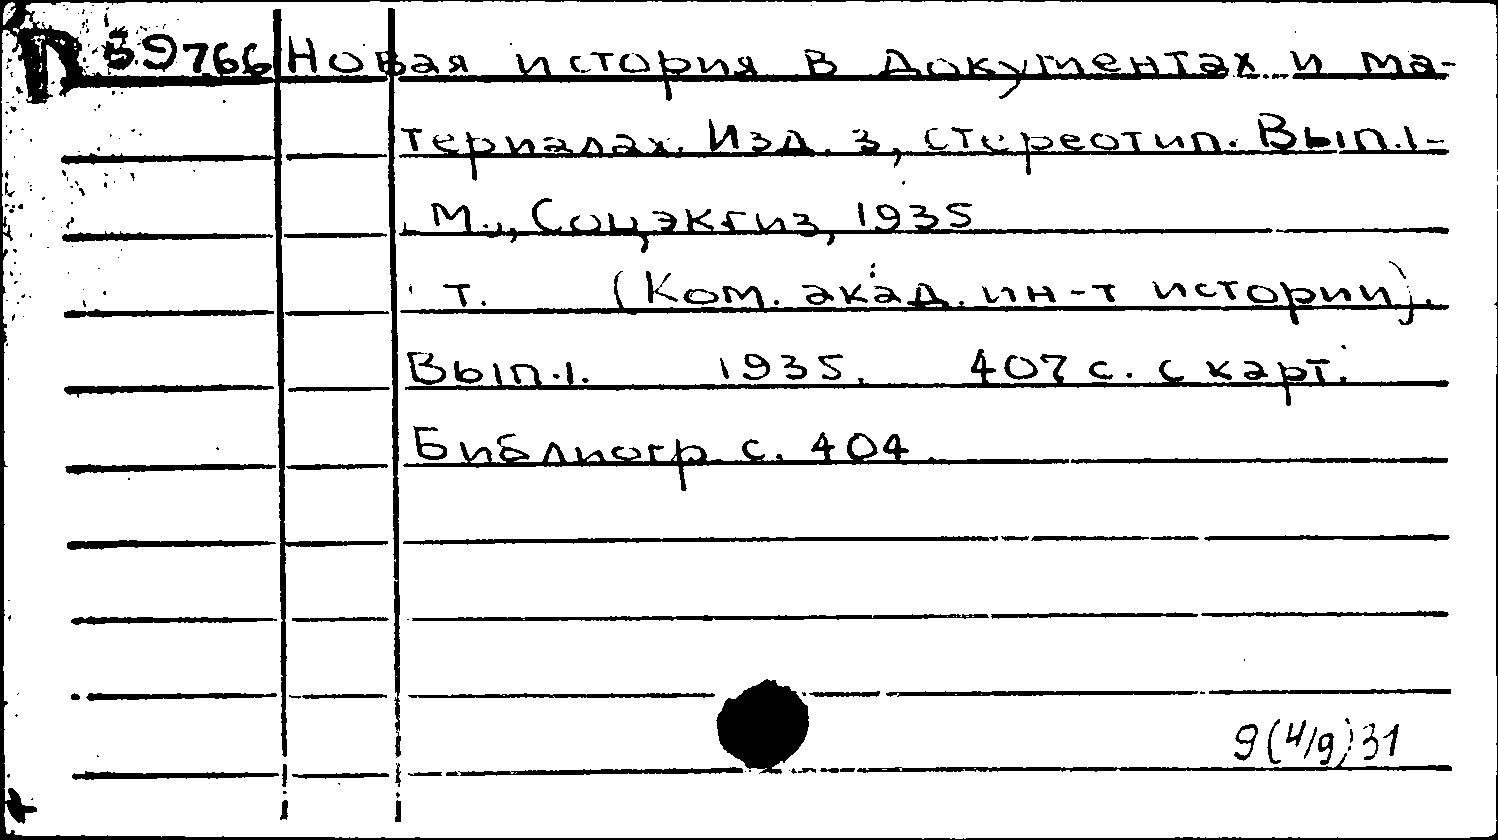 П 59766 Новая история в документах и ма-
териалах. Изд. 3, стереотип. Вып.1-
М., Соцэкгиз, 1935
т. (Ком. акад. ин-т истории).
Вып.1. 1935. 407 с. с карт.
Библиогр. с. 404
9(4/9)31